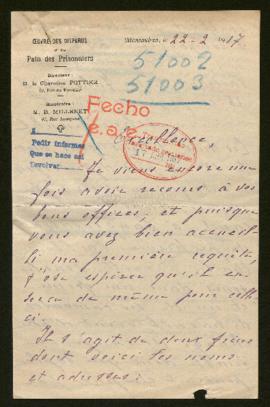 ŒUVRES DES DISPARUS
et du
Pain des Prisonniers
Directeur:
M. le Chanoine POTTIER
Secrétaire:
M. B. MILLERET
22-2 1917
51002
51003
Fecho
e.a.e.
Pedir informes
Que se hace asi
Devolver
Excellence,
Je viens encore une
fois avoir recours à vos
bons offices, et puisque
vous avez bien accueil-
li ma première requête,
j'ose espérer qu'il en
sera de même pour celle-
ci.
Il s'agit de deux frères
dont voici les noms
et adresses: